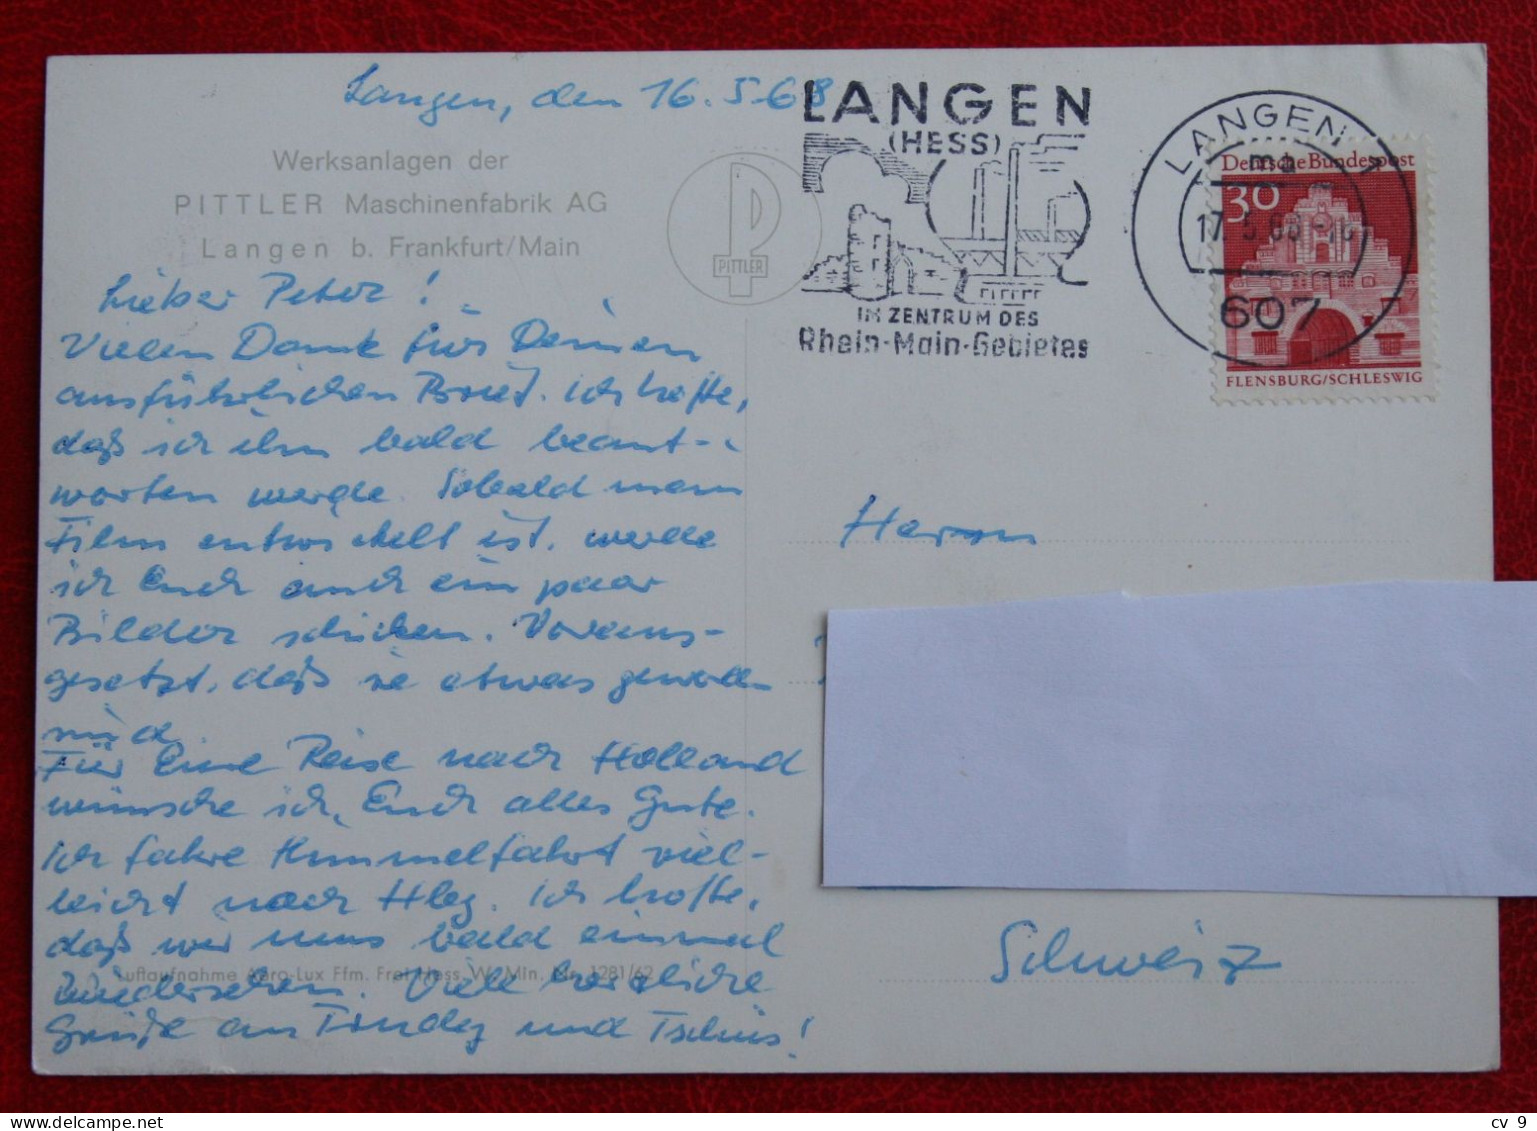 Langen, den 16.5.68
Werksanlagen der
PITTLER Maschinenfabrik AG
Langen b. Frankfurt/Main
PITTLER
LANGEN
(HESS)
IM ZENTRUM DES
Rhein-Main-Gebietes
LANGEN 1
ma
17. 5. 68
607
Deutsche Bundespost
30
FLENSBURG/SCHLESWIG
Lieber Peter!
Vielen Dank für Deinen
ausführlichen Brief. Ich hoffe,
daß ich ihn bald beant-
worten werde. Sobald mein
Film entwickelt ist, werde
ich Euch auch ein paar
Bilder schicken. Voraus-
gesetzt, daß sie etwas geworden
sind
Für Eine Reise nach Holland
wünsche ich, Euch alles Gute.
Ich fahre Himmelfahrt viel-
leicht nach Hbg. Ich hoffe,
daß wir uns bald einmal
wiedersehen. Viele herzliche
Grüße an und Tschüs!
Luftaufnahme Aero-Lux Ffm. Frei Hess. W. Min. Nr. 1281/62
Herrn
Schweiz
cv 9